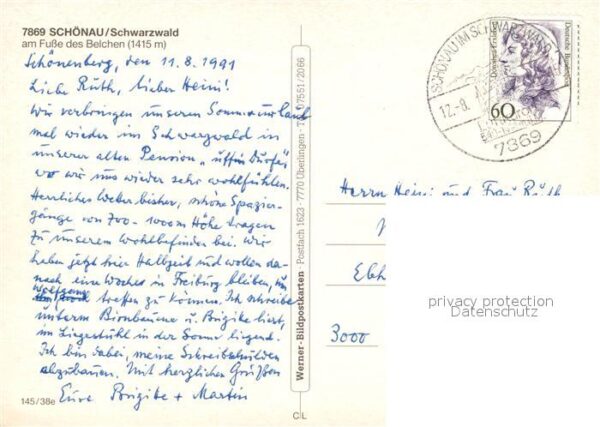 7869 SCHÖNAU/Schwarzwald
am Fuße des Belchen (1415 m)
Schönenberg, den 11.8.1991
Liebe Ruth, lieber Heini!
Wir verbringen unseren Sommerurlaub
mal wieder im Schwarzwald in
unserer alten Pension „uff'm Dörfle"
wo wir uns wieder sehr wohlfühlen.
Herrliches Wetter bisher, schöne Spazier-
gänge von 700 - 1000 m Höhe tragen
zu unserem Wohlbefinden bei. Wir
haben jetzt hier Halbzeit und wollen da-
nach eine Woche in Freiburg bleiben, um
Wolfgang treffen zu können. Ich schreibe
unterm Birnbaum u. Brigitte liest,
im Liegestuhl in der Sonne liegend.
Ich bin dabei, meine Schreibschulden
abzubauen. Mit herzlichen Grüßen
Eure Brigitte + Martin
145/38e
CL
Werner-Bildpostkarten · Postfach 1623 · 7770 Überlingen
07551/2066
SCHÖNAU IM SCHWARZWALD
12.-8.
7869
Deutsche Bundespost
60
Herrn Heini und Frau Ruth
3000
privacy protection
Datenschutz